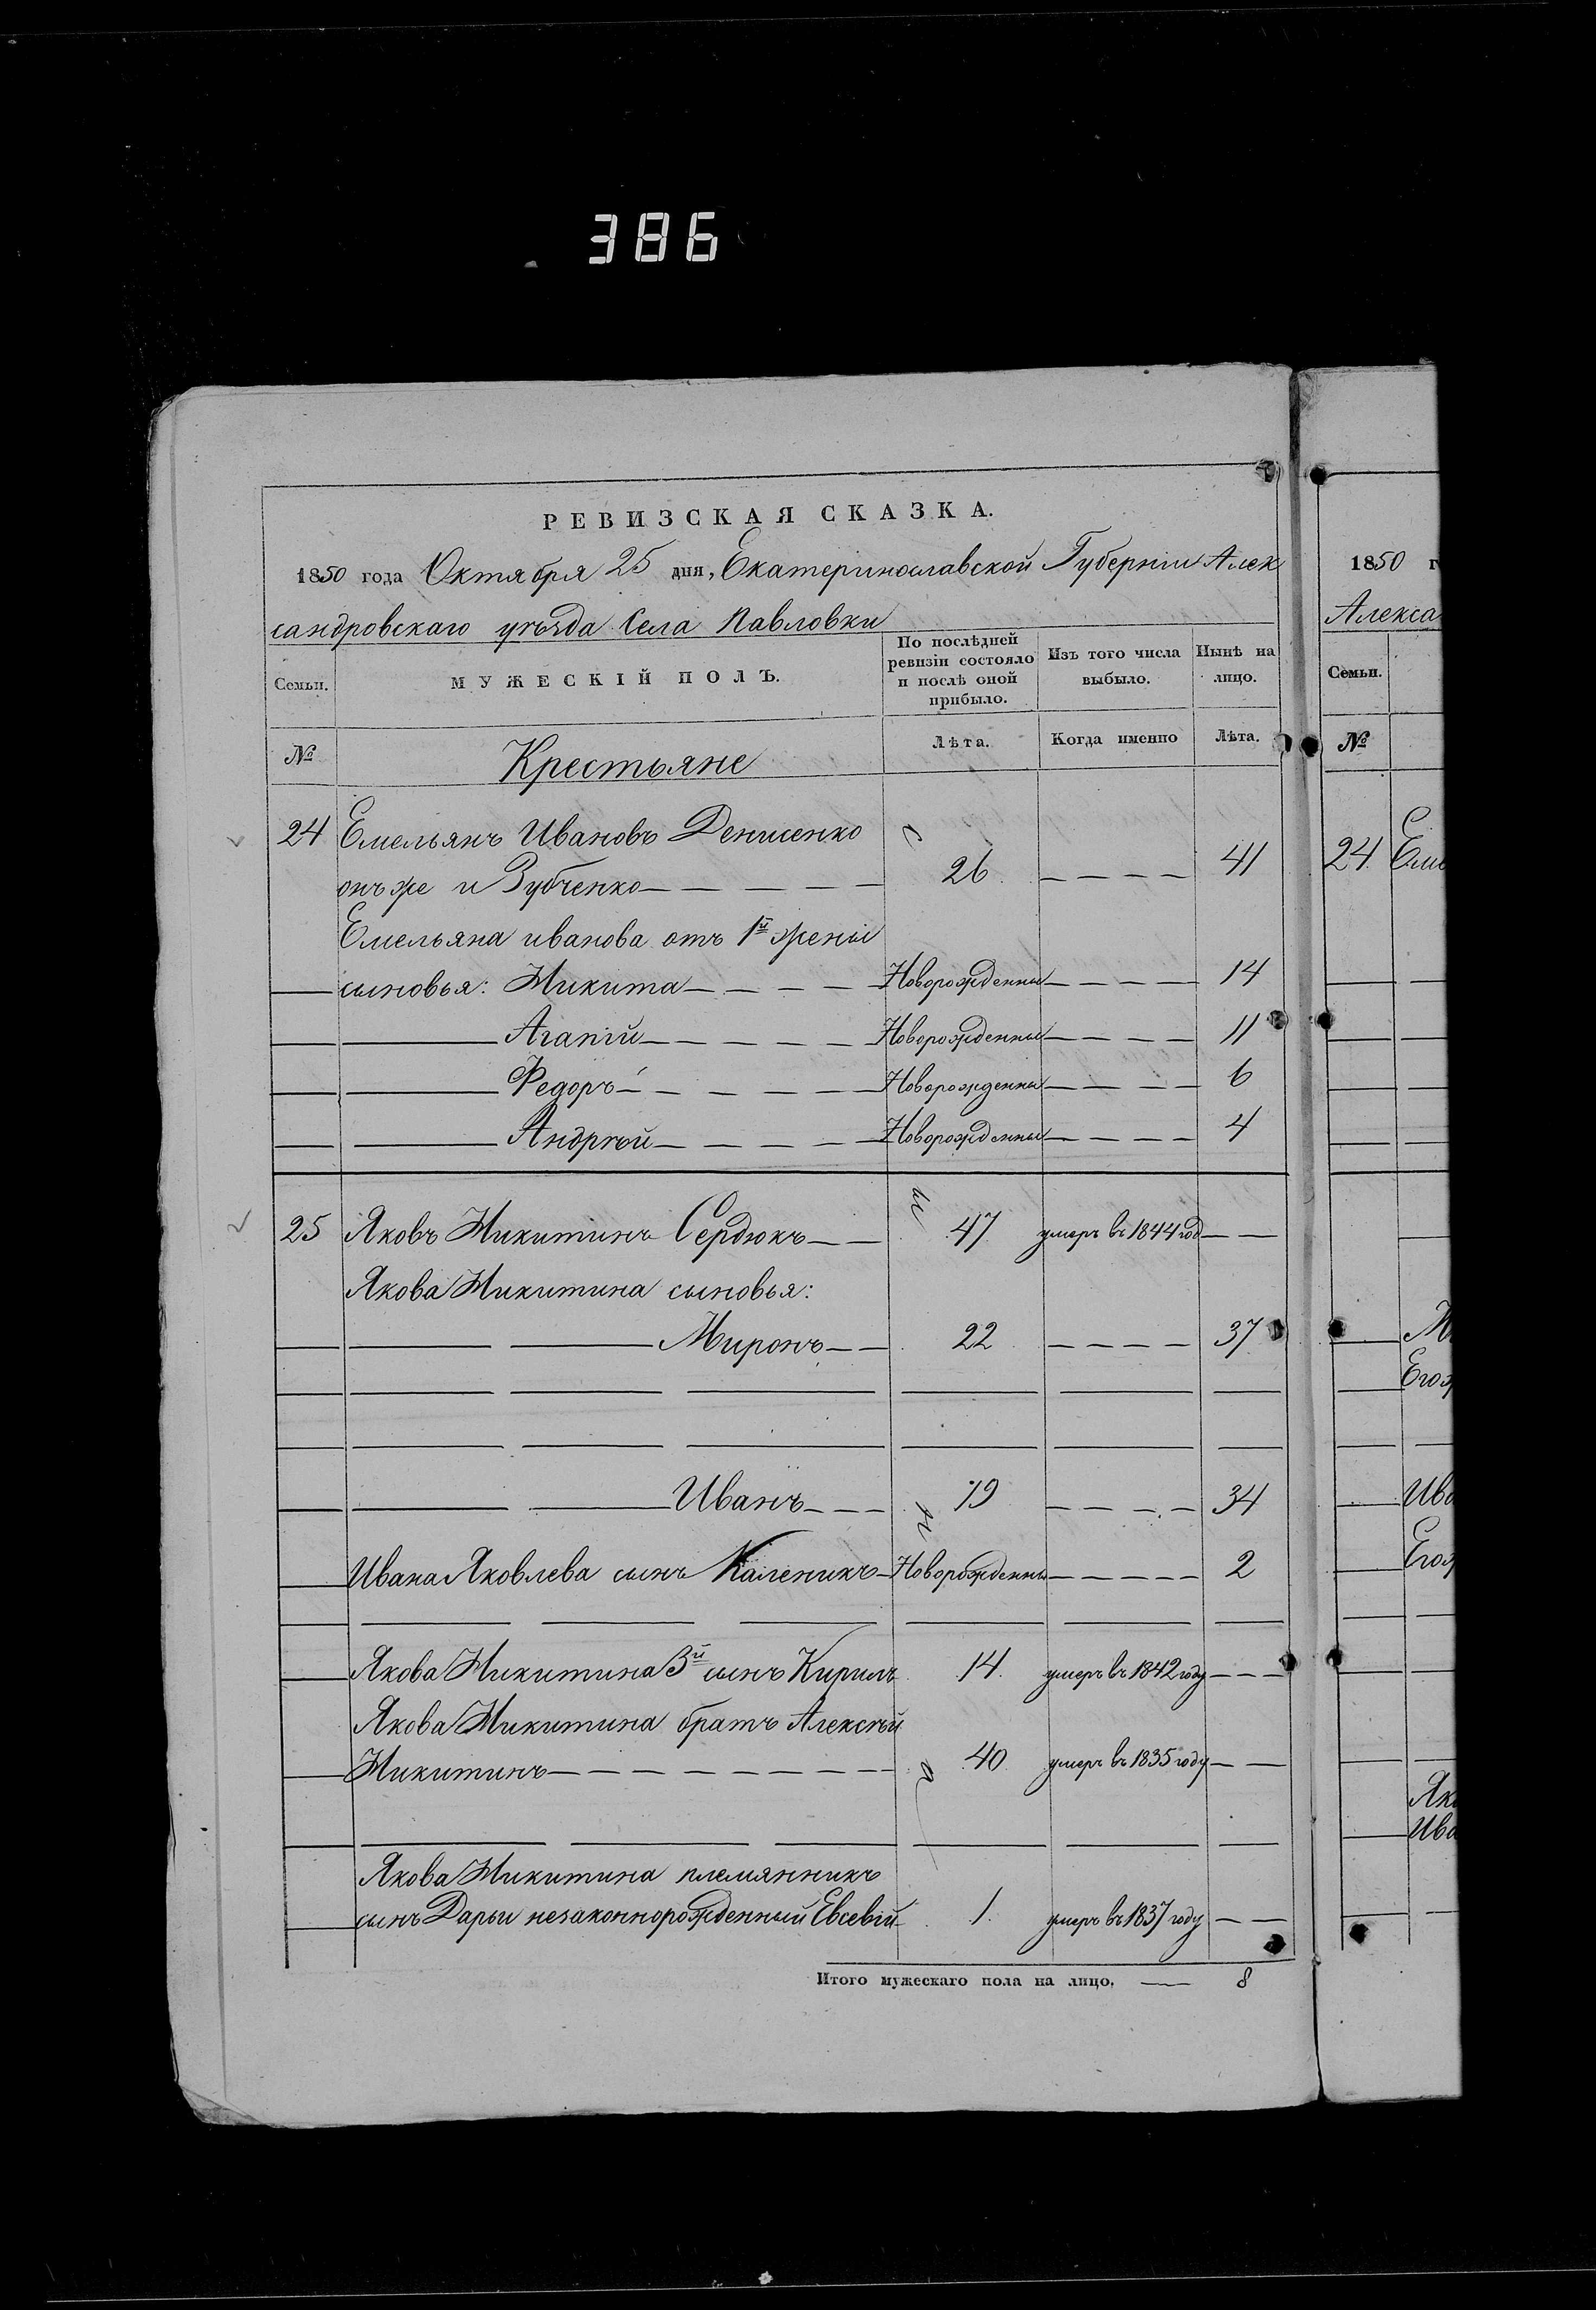 386
РЕВИЗСКАЯ СКАЗКА.
1850 года Октября 25 дня, Екатеринославской Губернии Алек
сандровскаго уѣзда Села Павловки
Семьи. МУЖЕСКІЙ ПОЛЪ. По послѣдней ревизіи состояло и послѣ оной прибыло. Изъ того числа выбыло. Нынѣ на лицо.
№ Крестьяне Лѣта. Когда именно Лѣта.
24 Емельянъ Ивановъ Денисенко
онъ же и Зубченко 26 41
Емельяна иванова отъ 1й жены
сыновья: Никита Новорожденны 14
Агапій Новорожденны 11
Федоръ Новорожденны 6
Андрѣй Новорожденны 4
25 Яковъ Никитинъ Сердюкъ 47 умеръ въ 1844 год
Якова Никитина сыновья:
Миронъ 22 37
Иванъ 19 34
Ивана Яковлева сынъ Каленикъ Новорожденны 2
Якова Никитина 3й сынъ Кирилъ 14. умеръ въ 1842 году
Якова Никитина братъ Алексѣй
Никитинъ 40 умеръ въ 1835 году
Якова Никитина племянникъ
сынъ Дарьи незаконнорожденный Евсевій 1. умеръ въ 1837 году
Итого мужескаго пола на лицо. 8
1850 г
Алекса
Семьи.
№
24. Еме
М
Егож
Ива
Егож
Яко
Ива